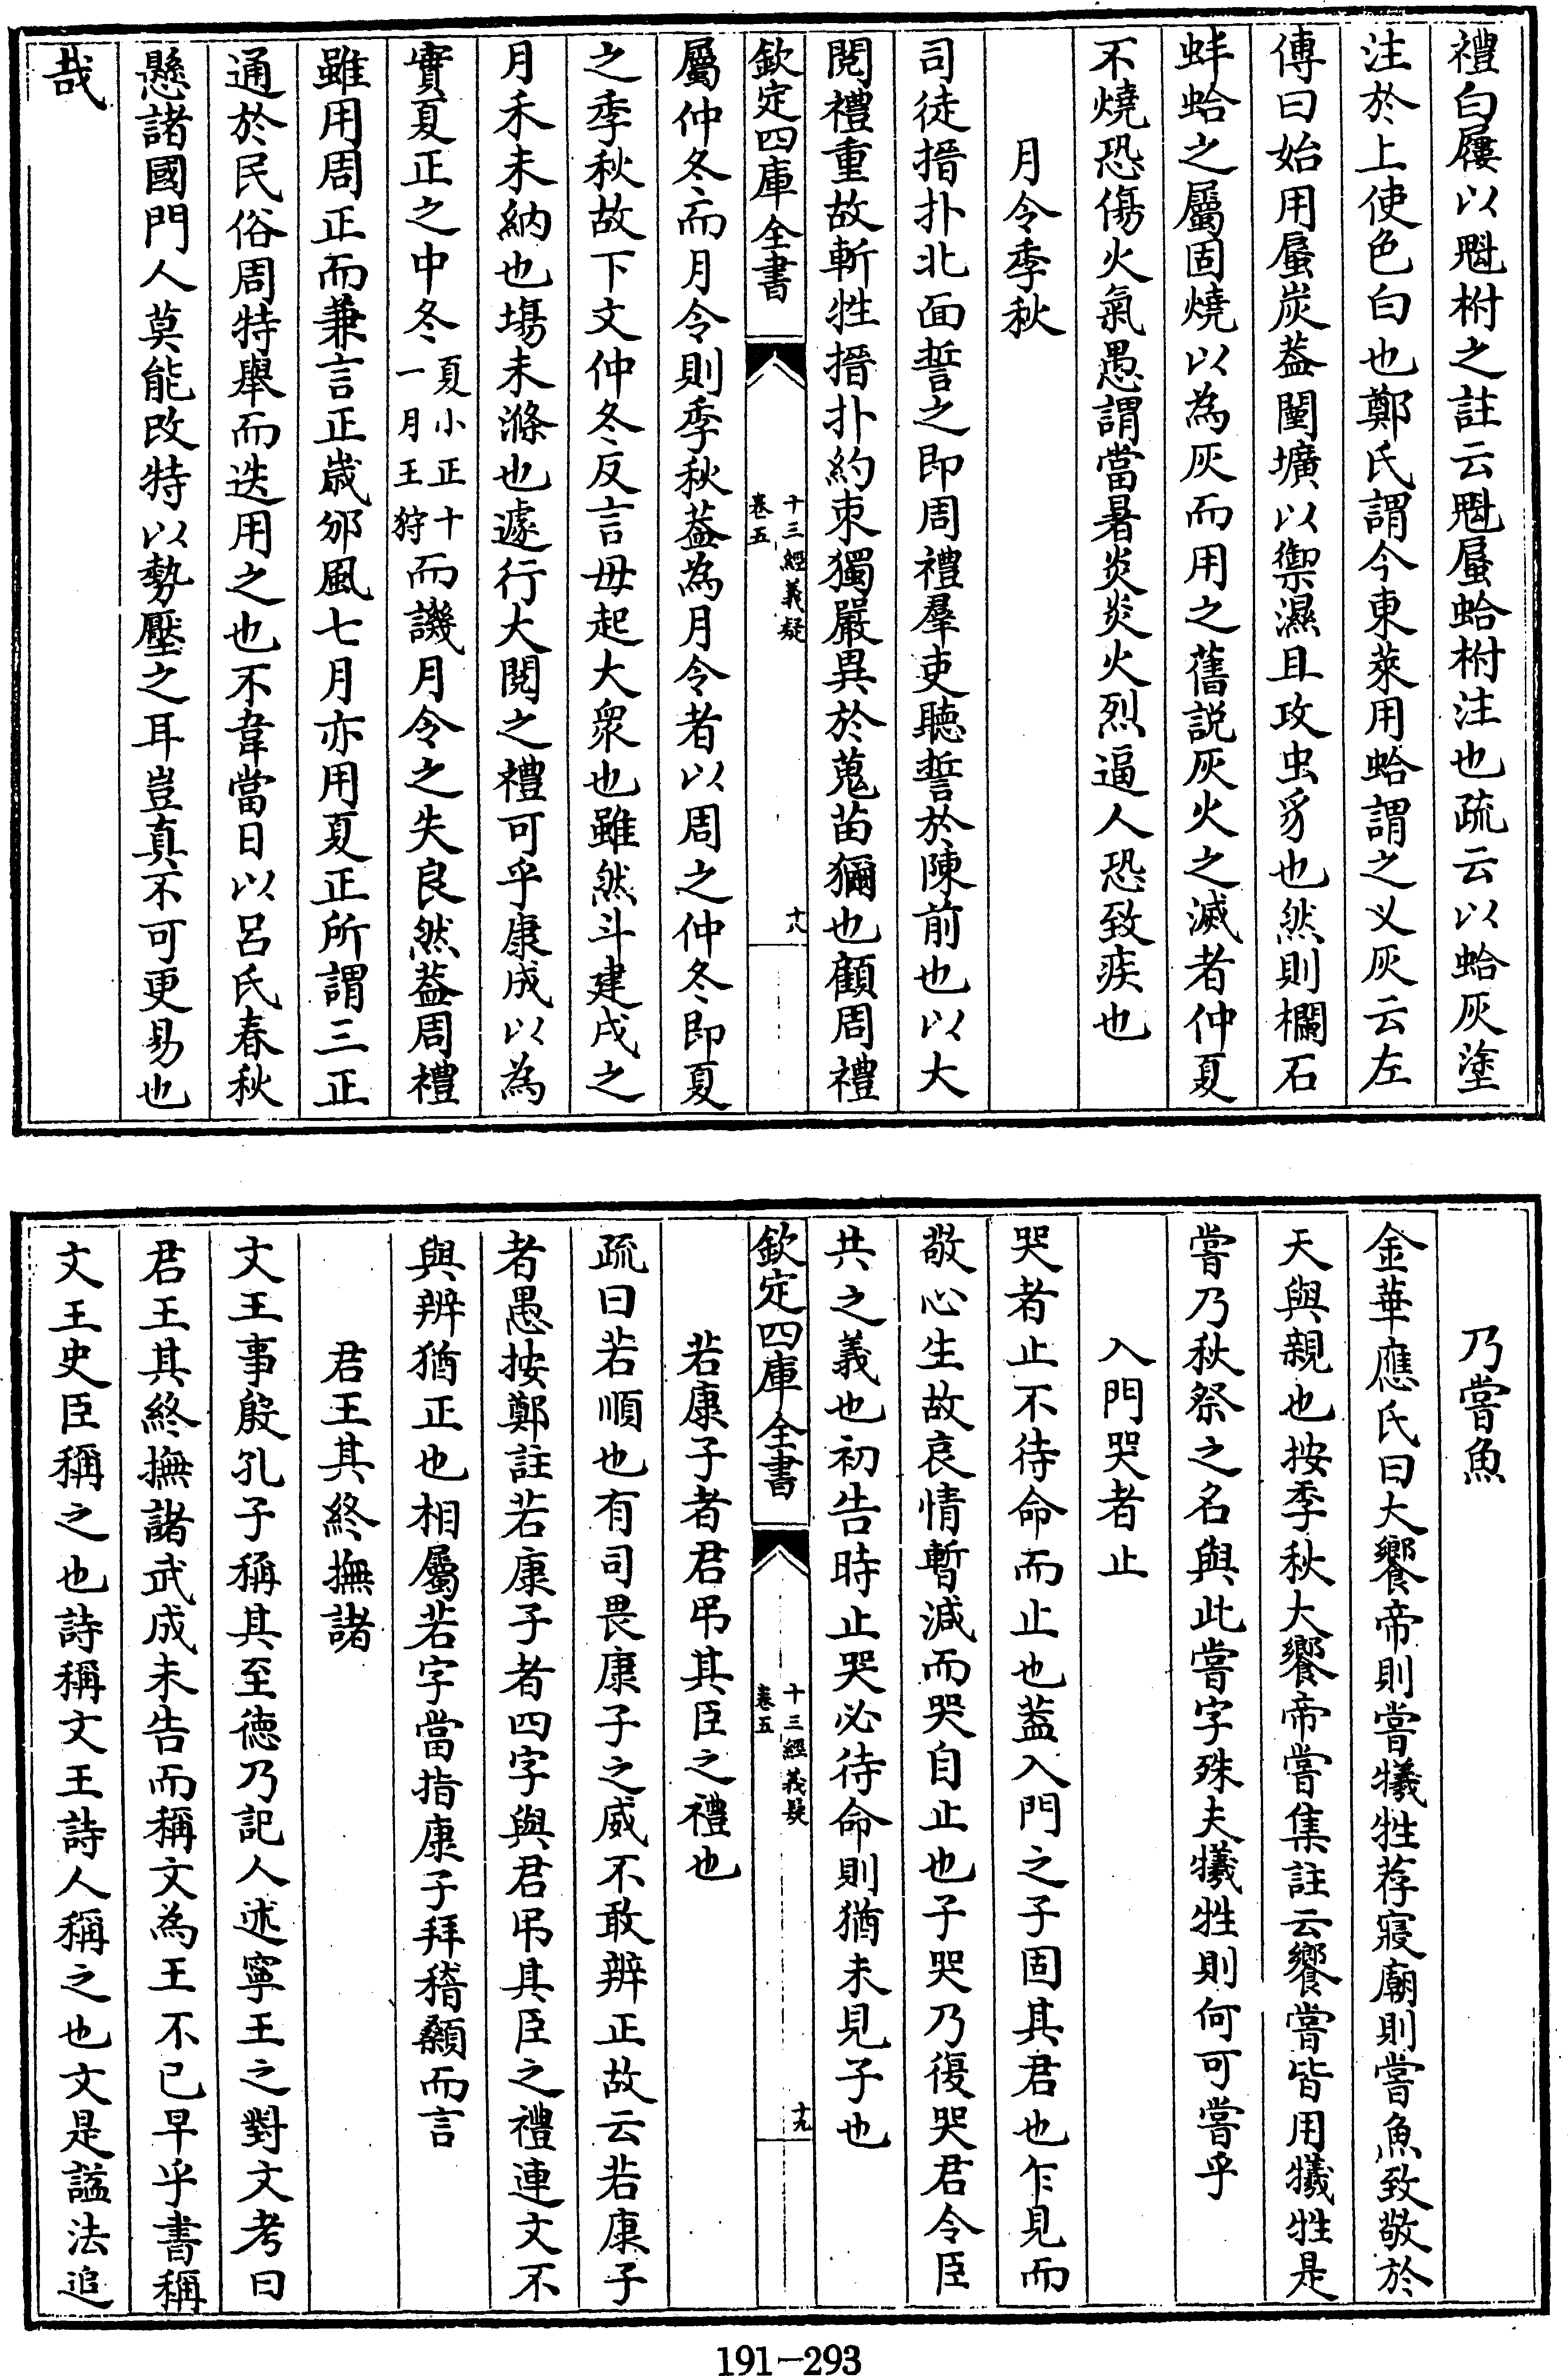 禮白屨以魁柎之註云魁蜃蛤柎注也疏云以蛤灰塗
注於上使色白也鄭氏謂今東萊用蛤謂之乂灰云左
傳曰始用蜃炭葢闉壙以禦濕且攻虫豸也然則欄石
蚌蛤之屬固燒以為灰而用之舊説灰火之滅者仲夏
不燒恐傷火氣愚謂當暑炎炎火烈逼人恐致疾也
月令季秋
司徒搢扑北面誓之即周禮羣吏聽誓於陳前也以大
閱禮重故斬牲搢扑約束獨嚴異於蒐苗獮也顧周禮
欽定四庫全書
十三經義疑
卷五
十八
屬仲冬而月令則季秋葢為月令者以周之仲冬即夏
之季秋故下文仲冬反言毋起大衆也雖然斗建戌之
月禾未納也塲未滌也遽行大閱之禮可乎康成以為
實夏正之中冬夏小正十一月王狩而譏月令之失良然葢周禮
雖用周正而兼言正歳邠風七月亦用夏正所謂三正
通於民俗周特舉而迭用之也不韋當日以呂氏春秋
懸諸國門人莫能改特以勢壓之耳豈真不可更易也
哉
乃嘗魚
金華應氏曰大饗帝則嘗犧牲荐寢廟則嘗魚致敬於
天與親也按季秋大饗帝嘗集註云饗嘗皆用犧牲是
嘗乃秋祭之名與此嘗字殊夫犧牲則何可嘗乎
入門哭者止
哭者止不待命而止也葢入門之子固其君也乍見而
敬心生故哀情暫減而哭自止也子哭乃復哭君令臣
共之義也初告時止哭必待命則猶未見子也
欽定四庫全書
十三經義疑
卷五
十九
若康子者君弔其臣之禮也
疏曰若順也有司畏康子之威不敢辨正故云若康子
者愚按鄭註若康子者四字與君弔其臣之禮連文不
與辨猶正也相屬若字當指康子拜稽顙而言
君王其終撫諸
文王事殷孔子稱其至德乃記人述寧王之對文考曰
君王其終撫諸武成未告而稱文為王不已早乎書稱
文王史臣稱之也詩稱文王詩人稱之也文是謚法追
191-293